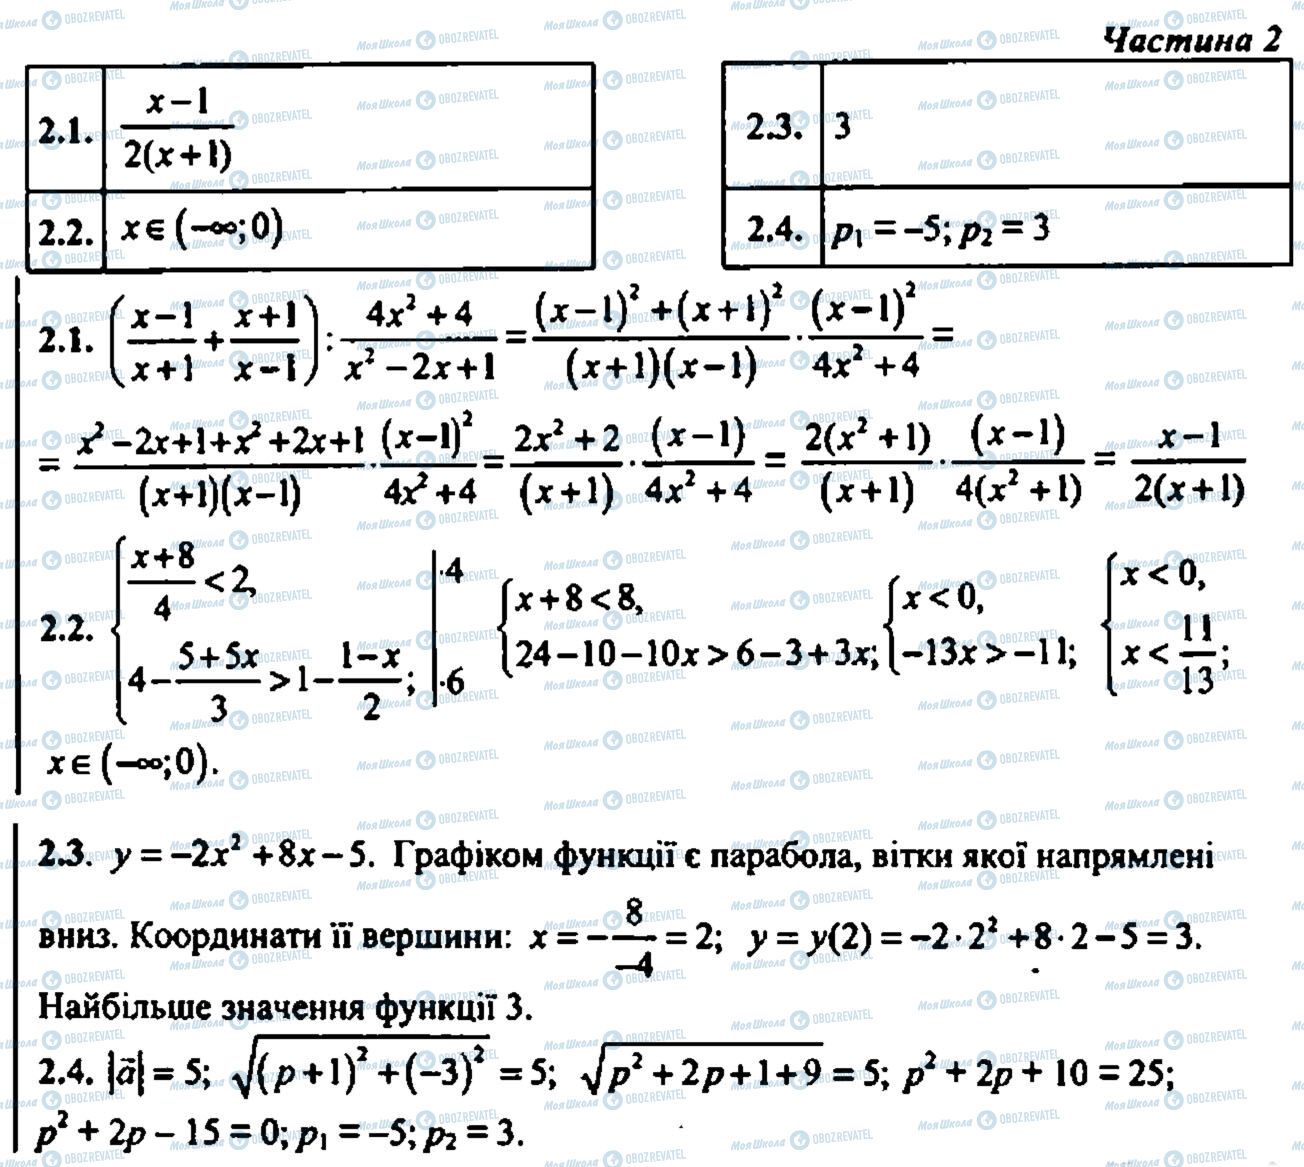 Частина 2
2.1. (x−1)/(2(x+1))
2.2. x∈(−∞;0)
2.3. 3
2.4. p₁ = −5; p₂ = 3
2.1. ((x−1)/(x+1) + (x+1)/(x−1)) : (4x²+4)/(x²−2x+1) = ((x−1)²+(x+1)²)/((x+1)(x−1)) · (x−1)²/(4x²+4) =
= (x²−2x+1+x²+2x+1)/((x+1)(x−1)) · (x−1)²/(4x²+4) = (2x²+2)/(x+1) · (x−1)/(4x²+4) = 2(x²+1)/(x+1) · (x−1)/(4(x²+1)) = (x−1)/(2(x+1))
2.2. { (x+8)/4 < 2, | ·4 { x+8<8, { x<0, { x<0,
4 − (5+5x)/3 > 1 − (1−x)/2; | ·6 24−10−10x>6−3+3x; −13x>−11; x < 11/13;
x∈(−∞;0).
2.3. y = −2x² + 8x − 5. Графіком функції є парабола, вітки якої напрямлені
вниз. Координати її вершини: x = − 8/−4 = 2; y = y(2) = −2·2² + 8·2 − 5 = 3.
Найбільше значення функції 3.
2.4. |a̅| = 5; √((p+1)² + (−3)²) = 5; √(p² + 2p + 1 + 9) = 5; p² + 2p + 10 = 25;
p² + 2p − 15 = 0; p₁ = −5; p₂ = 3.
Моя Школа OBOZREVATEL